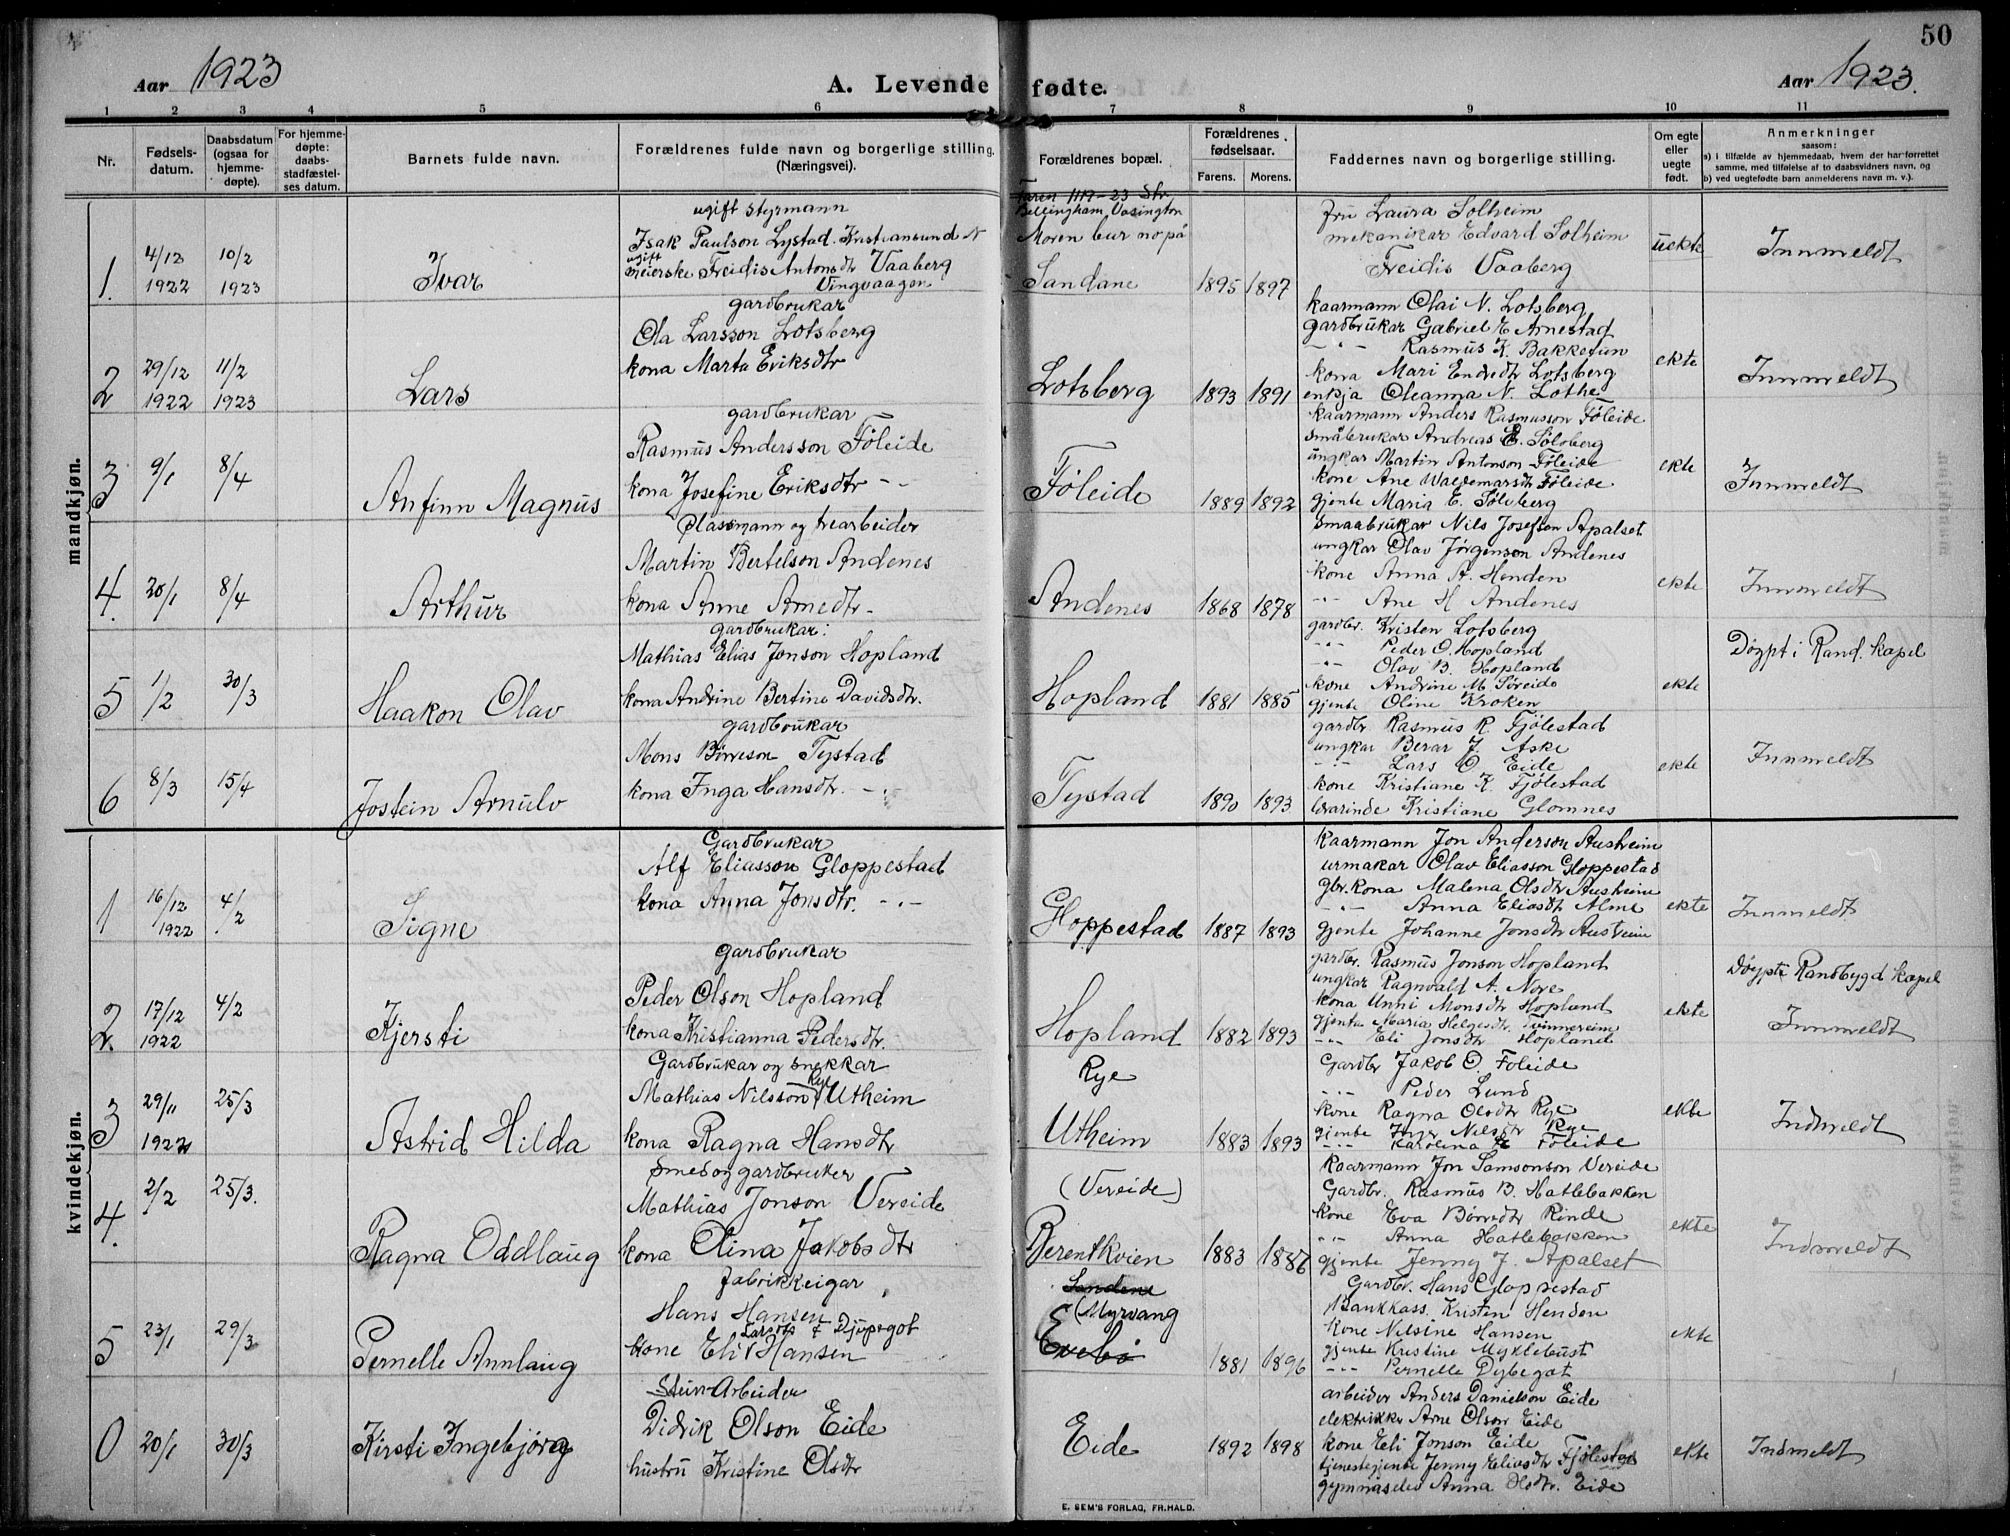 50
Aar 1923
A. Levende fødte.
Aar 1923.
1 2 3 4 5 6 7 8 9 10 11
Nr.
Fødsels-
datum.
Daabsdatum
(ogsaa for
hjemme-
døpte).
For hjemme-
døpte:
daabs-
stadfæstel-
ses datum.
Barnets fulde navn.
Forældrenes fulde navn og borgerlige stilling.
(Næringsvei).
Forældrenes bopæl.
Forældrenes
fødselsaar.
Farens. Morens.
Faddernes navn og borgerlige stilling.
Om egte
eller
uegte
født.
Anmerkninger
saasom:
a) i tilfælde av hjemmedaab, hvem der har forrettet
samme, med tilføielse af to daabsvidners navn, og
b) ved uegtefødte barn anmelderens navn m. v.).
mandkjøn.
1.
4/12
1922
10/2
1923
Ivar
ugift styrmann
Isak Paulson Lystad. Kristiansund N
ugift
meierske Freidis Antonsdtr Vaaberg
Vingvaagen
Faren 1119-23 Str
Bellingham, Vasington
Moren bur no på
Sandane
1895 1897
fru Laura Solheim
mekanikar Edvard Solheim
Freidis Vaaberg
uekte
Innmeldt
2
29/12
1922
11/2
1923
Lars
gardbrukar
Ola Larsson Lotsberg
kona Marta Eriksdtr
Lotsberg
1893 1891
kaarmann Olai N. Lotsberg
gardbrukar Gabriel E Arnestad
-"- Rasmus K. Bakketun
kona Mari Endredtr Lotsberg
enkja Oleanna N. Lothe
ekte
Innmeldt
3
9/1
8/4
Anfinn Magnus
gardbrukar
Rasmus Andersson Føleide
kona Josefine Eriksdtr -"-
Føleide
1889 1892
kaarmann Anders Rasmusson Føleide
småbrukar Andreas E. Sølvberg
ungkar Martin Antonson Føleide
kone Ane Waldemarsdt Føleide
gjente Maria E. Sølvberg
ekte
Innmeldt
4.
20/1
8/4
Arthur
Plassmann og trearbeider
Martin Bertelson Andenes
kona Anne Arnedtr -
Andenes
1868 1878
Smaabrukar Nils Josefson Apalset
ungkar Olav Jørgenson Andenes
kone Anna A. Henden
-"- Ane H Andenes
ekte
Innmeldt
5
1/2
30/3
Haakon Olav
gardbrukar:
Mathias Elias Jonson Hopland
kona Andrine Bertine Davidsdtr.
Hopland
1881 1885
gardbr. Kristen Lotsberg
-"- Peder O. Hopland
-"- Olav B. Hopland
kone Andrine M. Søreide
gjente Oline Kroken
ekte
Døypt i Rand. kapel
6
8/3
15/4
Jostein Arnulv
gardbrukar
Mons Børreson Tystad
kona Inga Hansdtr. -"-
Tystad
1890 1893
gardbr Rasmus R. Fjølestad
ungkar Berar J. Aske
-"- Lars O. Eide
kone Kristiane K. Fjølestad
lærarinde Kristiane Glomnes
ekte
Innmeldt
kvindekjøn.
1
16/12
1922
4/2
Signe
Gardbrukar
Alf Eliasson Gloppestad
kona Anna Jonsdtr. -"-
Gloppestad
1887 1893
kaarmann Jon Anderson Austreim
urmakar Olav Eliasson Gloppestad
gbr. kona Malena Olsdtr Austreim
-"- Anna Eliasdt Alme
gjente Johanne Jonsdtr Austreim
ekte
Innmeldt
2.
17/12
1922
4/2
Kjersti
gardbrukar
Peder Olson Hopland
kona Kristianna Pedersdtr.
Hopland
1882 1893
gardbr. Rasmus Jonson Hopland
ungkar Ragnvald A. Nore
kona Unni Monsdtr Hopland
gjente Maria Helgesdtr. Tvinnereim
-"- Eli Jonsdtr Hopland
ekte
Døypt i Randbygd kapel
Innmeldt
3
29/11
1922
25/3
Astrid Hilda
Gardbrukar og snekkar
Mathias Nilsson Rye Utheim
kona Ragna Hansdtr
Rye
Utheim
1883 1893
Gardbr Jakob O. Føleide
-"- Peder Lund
kone Ragna Olsdtr Rye
gjente Inger Nilsdtr Rye
-"- Karolina Føleide
ekte
Indmeldt
4.
2/2
25/3.
Ragna Oddlaug
Smed og gardbruker
Mathias Jonson Vereide
kona Olina Jakobsdtr
(Vereide)
Berentkvien
1883 1886
Kaarmann Jon Samsonson Vereide
Gardbr. Rasmus B. Hatlebakken
kone Eva Børredtr Rinde
-"- Anna Hatlebakken
gjente Jenny J. Apalset
ekte
Indmeldt
5
23/1
29/3
Pernelle Annlaug
fabrikkeigar
Hans Hansen
Larsdtr f Djupegot
kone Eli Hansen
Sandene
(Myrvang
Evebø
1881 1896
Gardbr. Hans Gloppestad
Bankkass. Kristen Henden
kone Nilsine Hansen
gjente Kristine Myklebust
-"- Pernelle Dybegot
ekte
0
20/1
30/3
Kirsti Ingebjørg
Stein-Arbeider
Didrik Olson Eide
hustru Kristine Olsdtr
Eide
1892 1898
arbeider Anders Danielson Eide
elektriker Arne Olson Eide
kone Eli Jonson Eide
tjenestegjente Jenny Eliasdtr Fjølestad
gymnaselev Anna Olsdtr. Eide
ekte
Indmeldt
E. SEM'S FORLAG, FR.HALD.